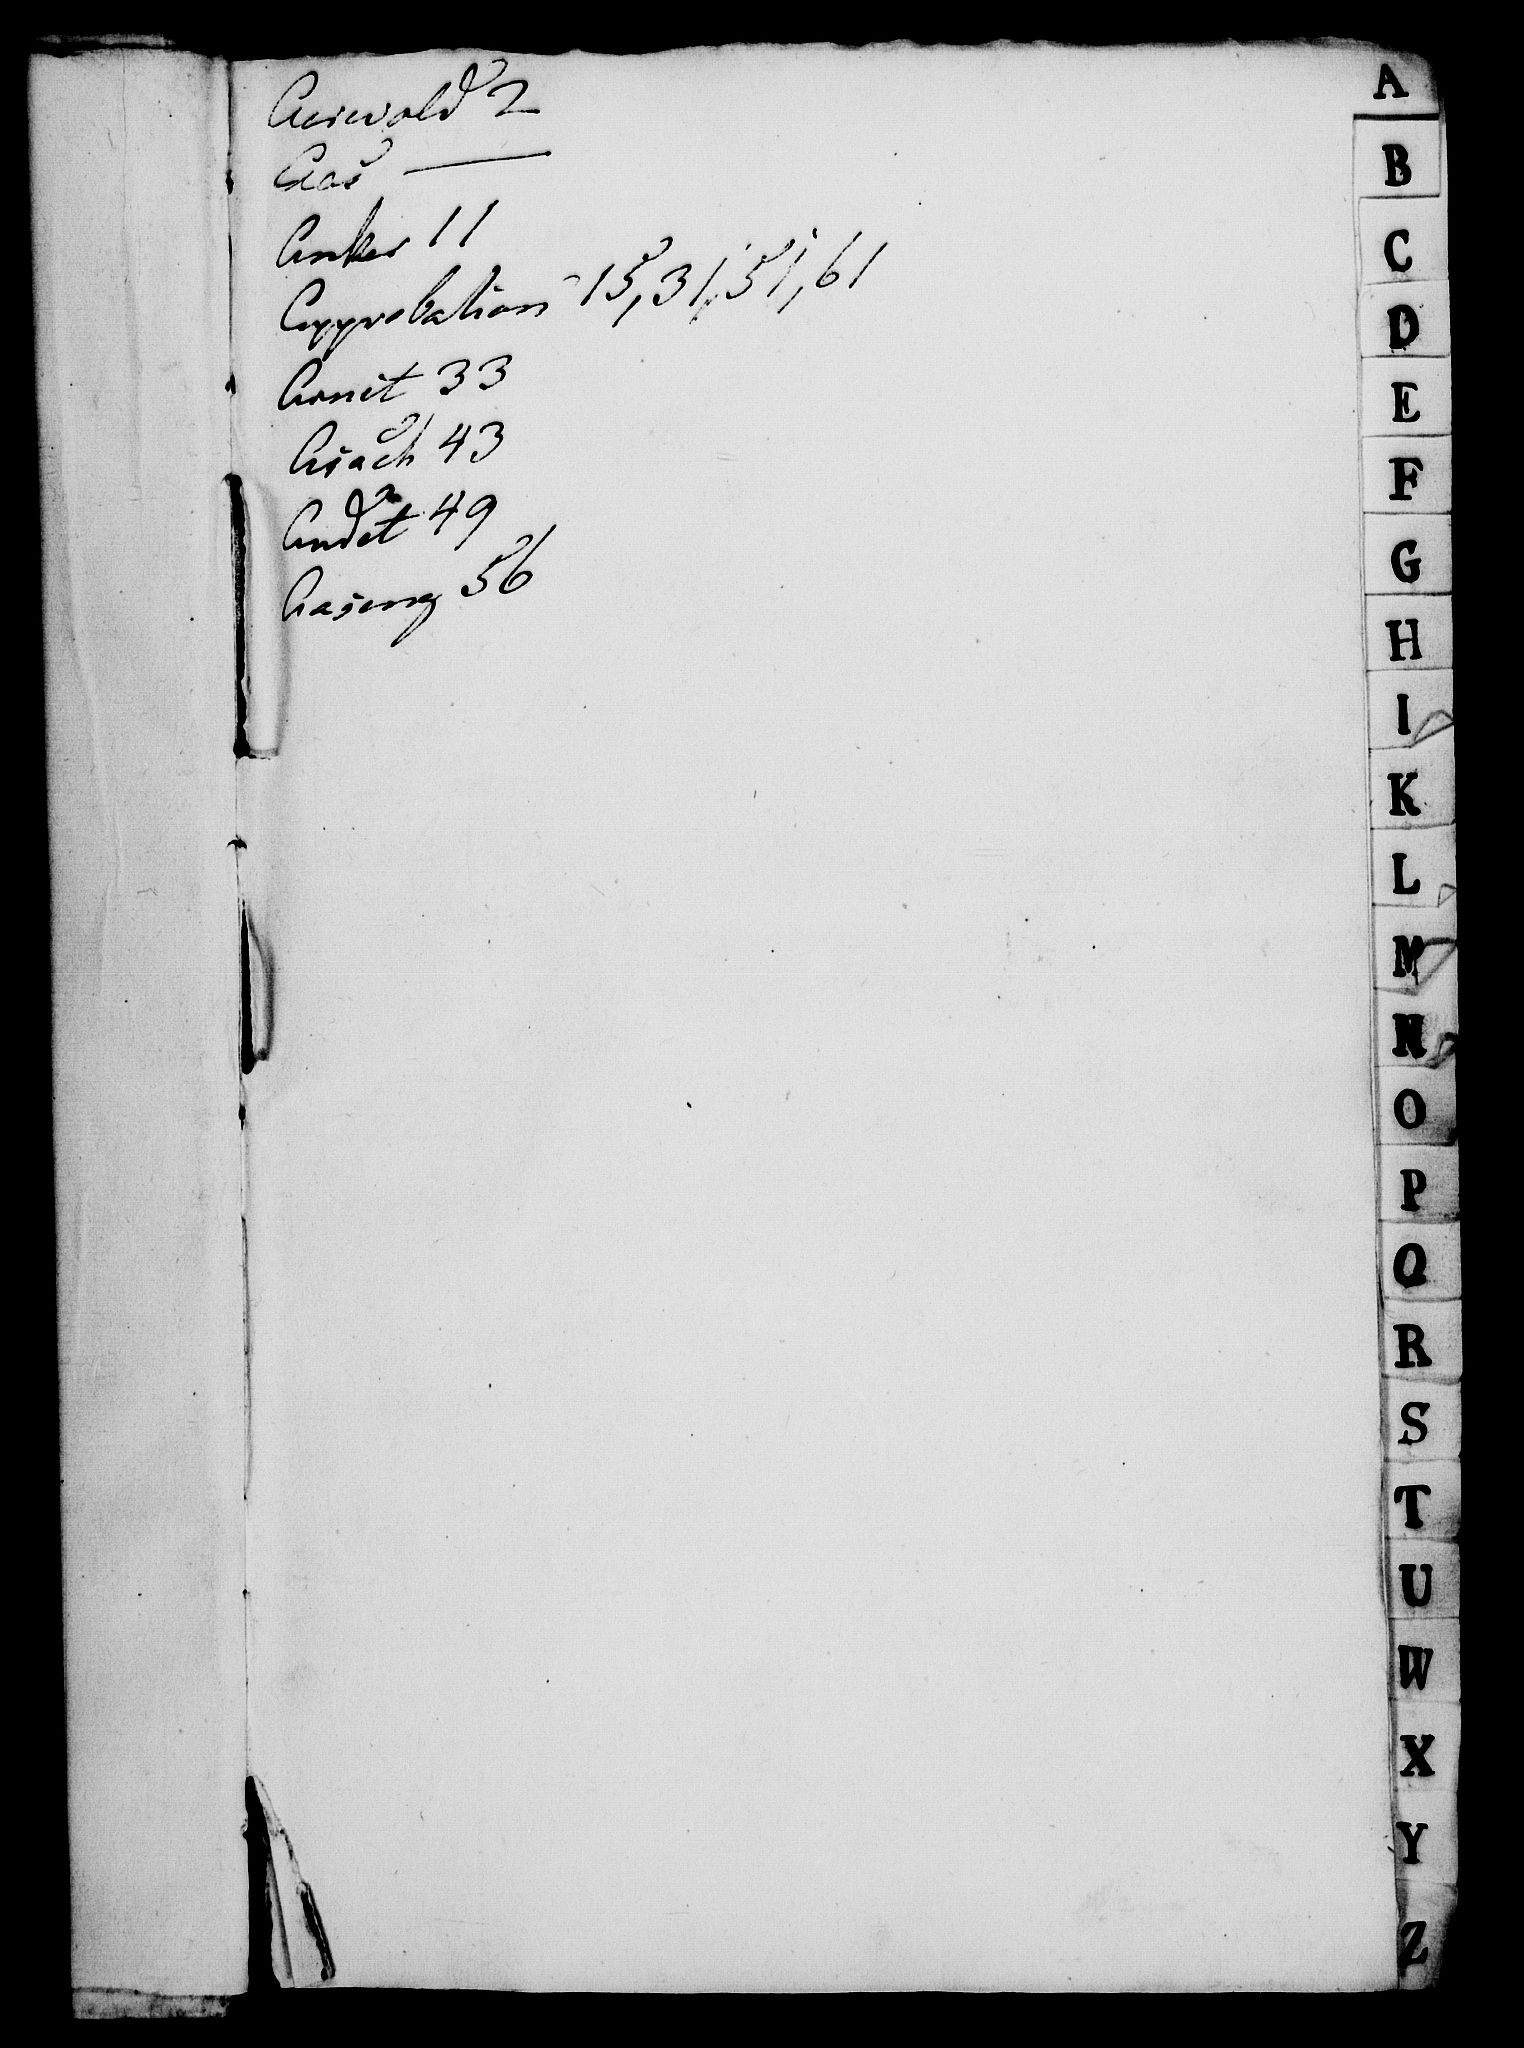 Aarvold 2
Aas —
Anker 11
Approbation 15, 31, 51, 61
Arnet 33
Asach 43
Andet 49
Aaseng 56
A
B
C
D
E
F
G
H
I
K
L
M
N
O
P
Q
R
S
T
U
W
X
Y
Z